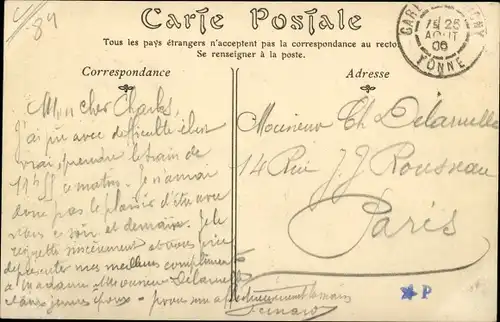 89
Carte Postale
Tous les pays étrangers n'acceptent pas la correspondance au recto.
Se renseigner à la poste.
Correspondance
Adresse
25
AOUT
06
YONNE
Mon cher Charles,
J'ai pu avec difficulté il est
vrai, prendre le train de
11h 55 ce matin. Je n'aurai
donc pas le plaisir d'être avec
vous ce soir et demain. Je le
regrette sincèrement et vous prie
de présenter mes meilleurs compliments
à Madame Monsieur Delaruelle
et aux jeunes époux - pour vous affectueusement la main
Fernand
Monsieur Ch Delaruelle
14 Rue J. J. Rousseau
Paris
P